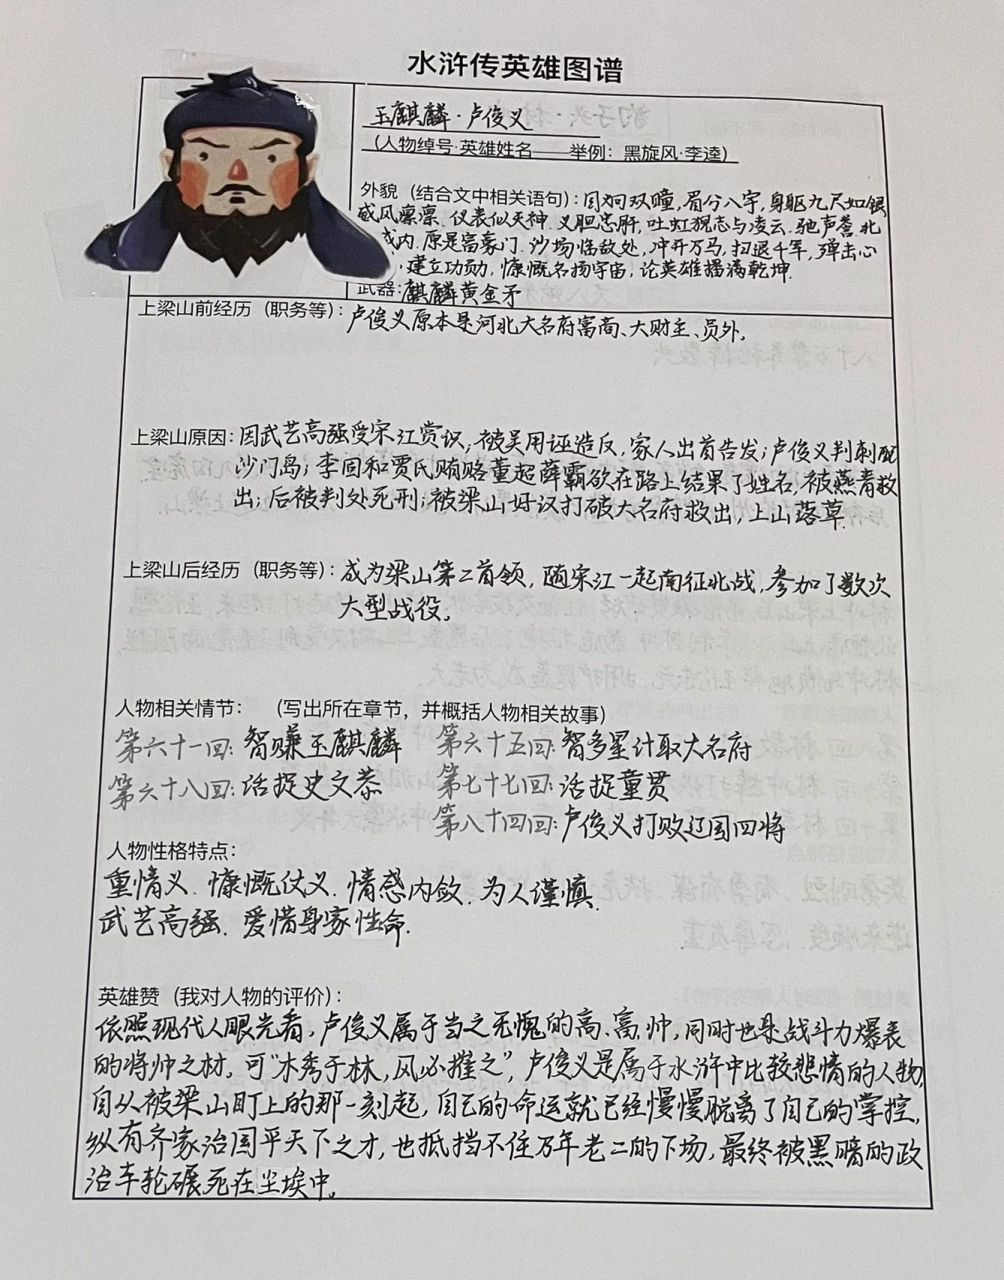 水浒传英雄图谱
玉麒麟·卢俊义
(人物绰号·英雄姓名——举例：黑旋风·李逵)
外貌（结合文中相关语句）：目炯双瞳，眉分八字，身躯九尺如银
威风凛凛，仪表似天神．义胆忠肝，吐虹猊志与凌云．驰声誉．北
城内．原是富豪门．沙场临敌处，冲开万马，扫退千军，殚击心
，建立功勋，慷慨名扬宇宙，论英雄播满乾坤．
武器：麒麟黄金矛
上梁山前经历（职务等）：卢俊义原本是河北大名府富商、大财主、员外。
上梁山原因：因武艺高强受宋江赏识；被吴用诬造反，家人出首告发；卢俊义判刺配
沙门岛；李固和贾氏贿赂董超薛霸欲在路上结果了姓名，被燕青救
出；后被判处死刑；被梁山好议打破大名府救出，上山落草．
上梁山后经历（职务等）：成为梁山第二首领，随宋江一起南征北战，参加了数次
大型战役。
人物相关情节：（写出所在章节，并概括人物相关故事）
第六十一回：智赚玉麒麟 第六十五回：智多星计取大名府
第六十八回：活捉史文恭 第七十七回：活捉童贯
第八十四回：卢俊义打败辽国四将
人物性格特点：
重情义．慷慨仗义．情感内敛．为人谨慎．
武艺高强．爱惜身家性命．
英雄赞（我对人物的评价）：
依照现代人眼光看，卢俊义属于当之无愧的高、富、帅，同时也是战斗力爆表
的将帅之材。可“木秀于林，风必摧之”，卢俊义是属于水浒中比较悲情的人物，
自从被梁山盯上的那一刻起，自己的命运就已经慢慢脱离了自己的掌控，
纵有齐家治国平天下之才，也抵挡不住万年老二的下场，最终被黑暗的政
治车轮碾死在尘埃中。